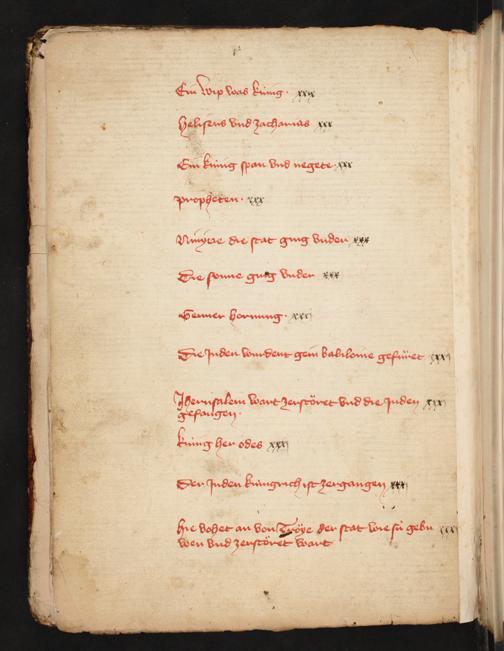 Ein wip was kúnig · xxix
Heliseus vnd zacharias xxx
Ein kúnig span vnd negete xxx
propheten · xxx
Ninive die stat ging vnder xxx
Die sonne ging vnder xxx
Genner hornung · xxxj
Die Juden wurdent gein babilonie gefüret xxxj
Jherusalem wart zerstöret vnd die Juden
gefangen ·
kúnig her odes xxxj
Der Juden kúnigrich ist zergangen
hie vohet an von Troye der stat wie sú gebu
wen vnd zerstöret wart